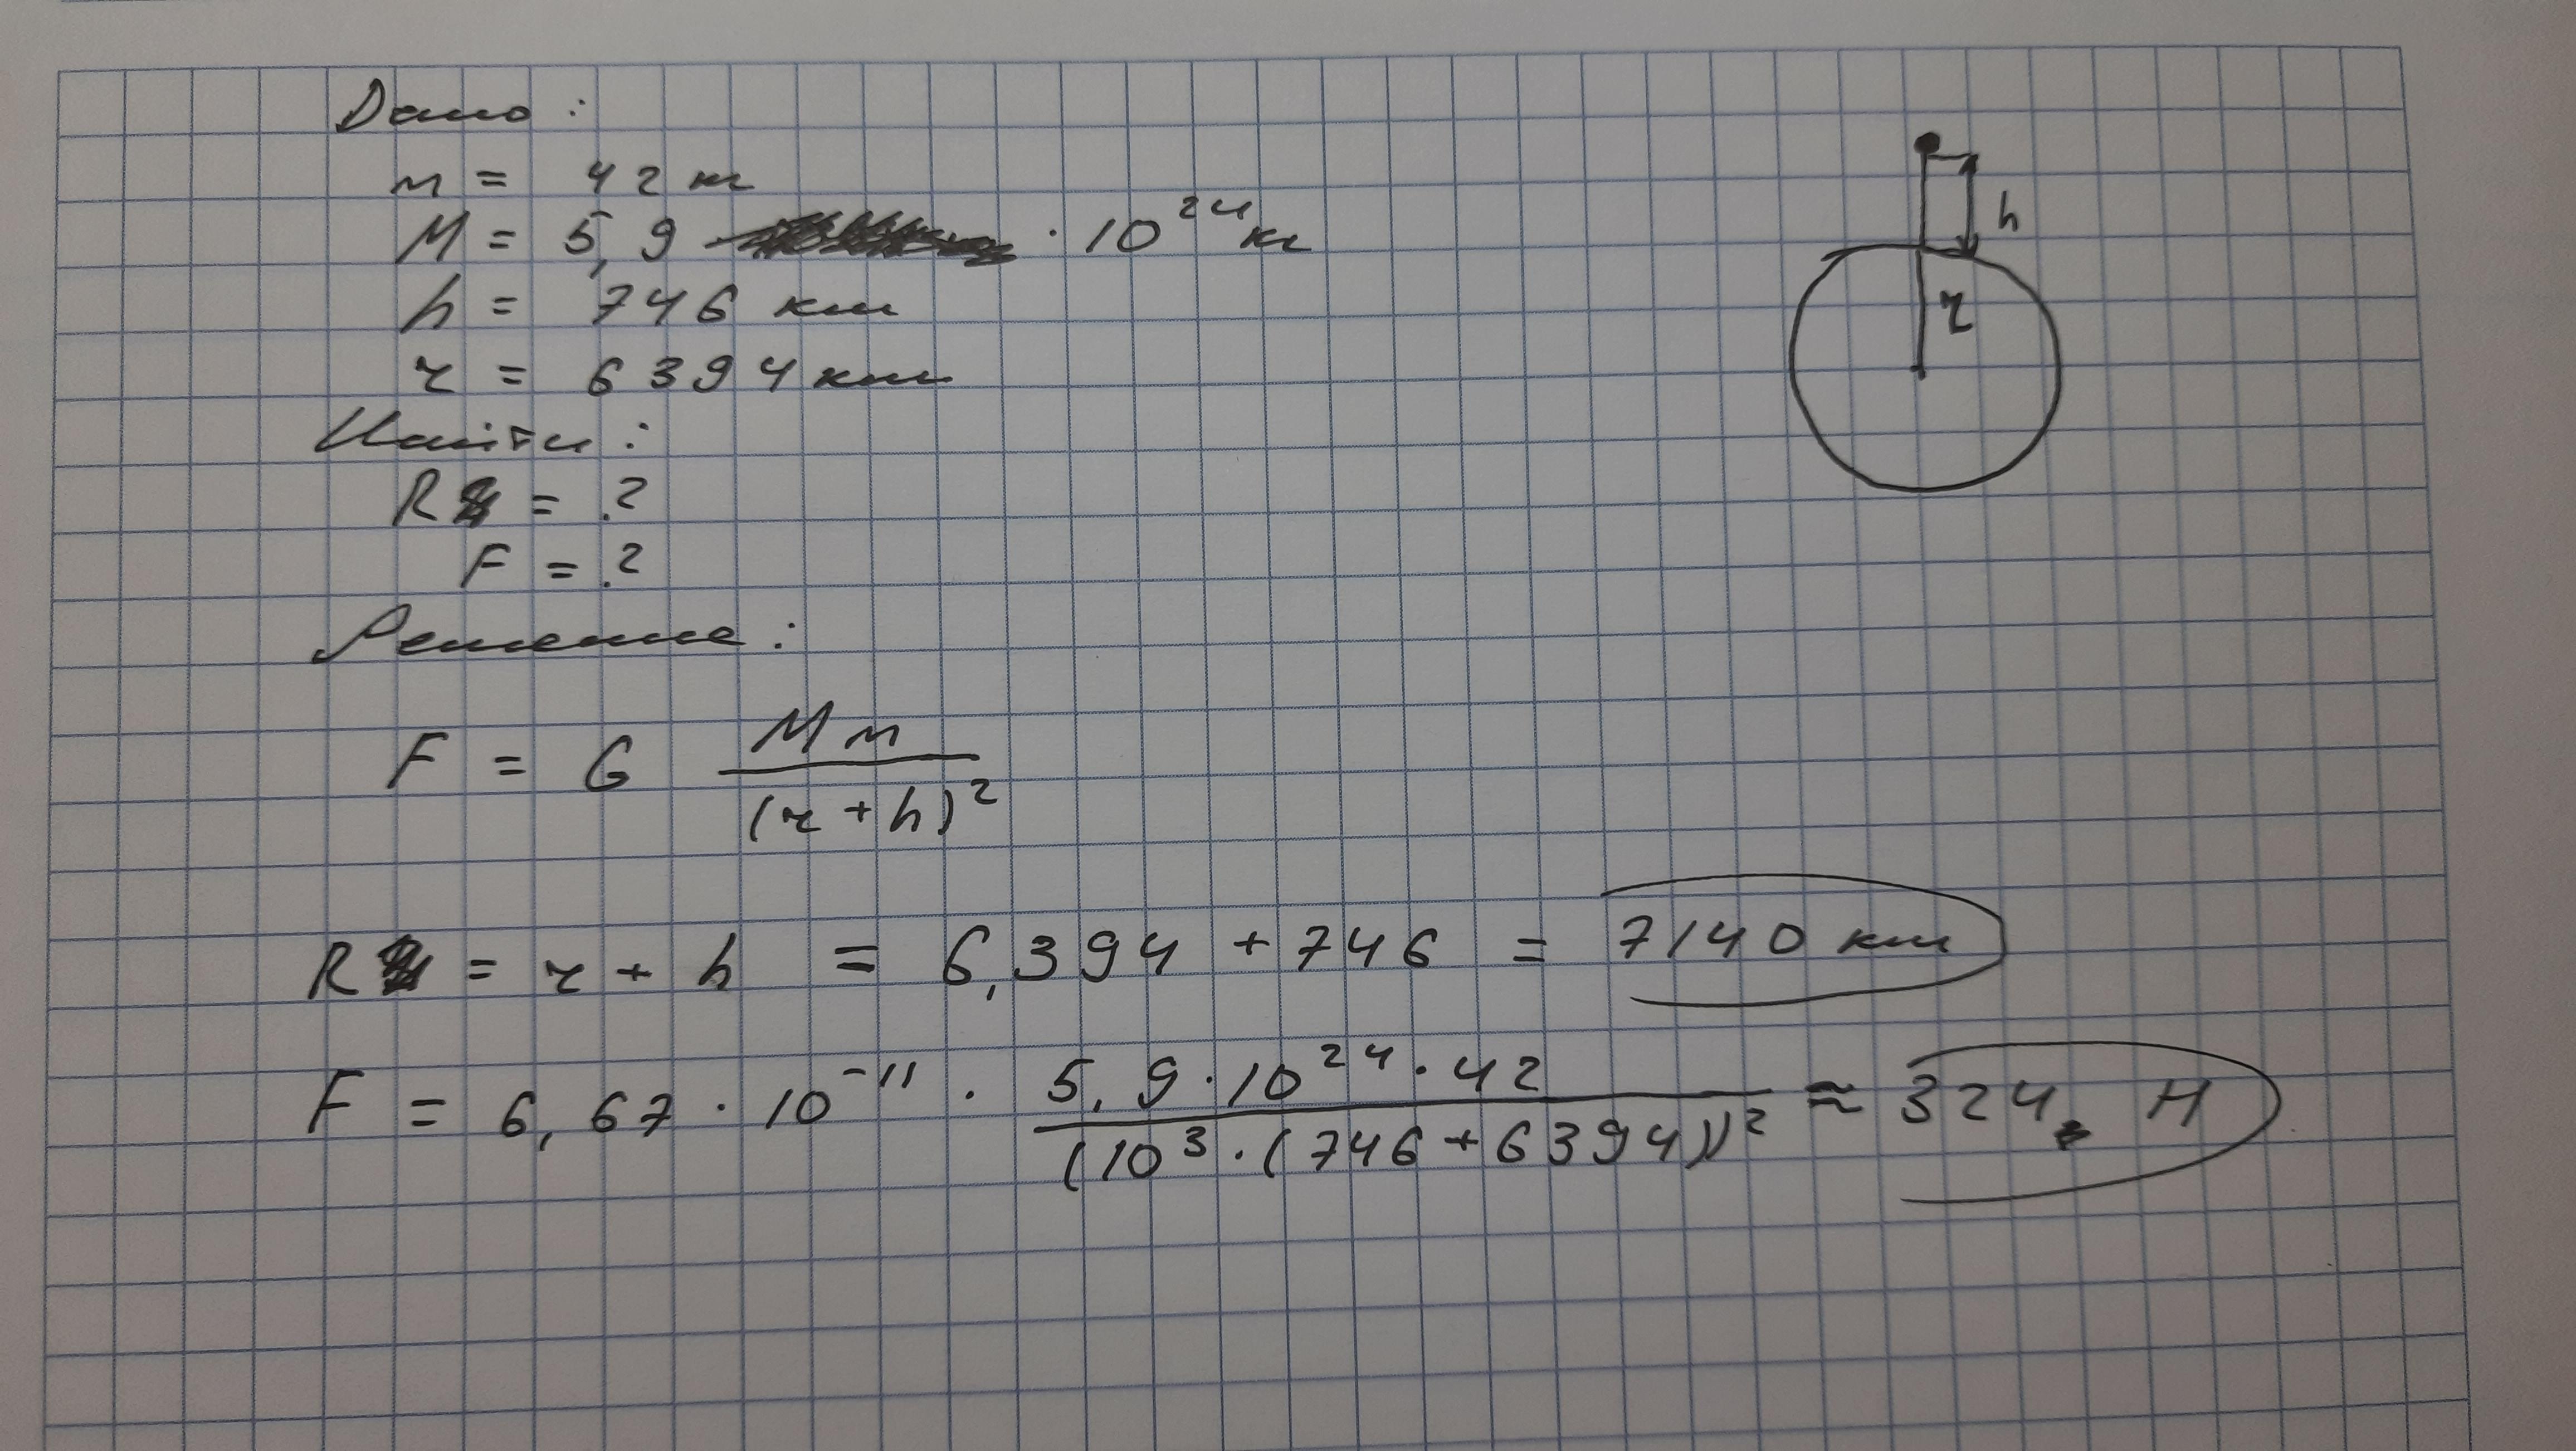 Дано:
m = 42 кг
M = 5,9 · 10²⁴ кг
h = 746 км
r = 6394 км
Найти:
R = ?
F = ?
Решение:
F = G Mm / (r + h)²
R = r + h = 6,394 + 746 = 7140 км
F = 6,67 · 10⁻¹¹ · 5,9 · 10²⁴ · 42 / (10³ · (746 + 6394))² ≈ 324 Н
h
r